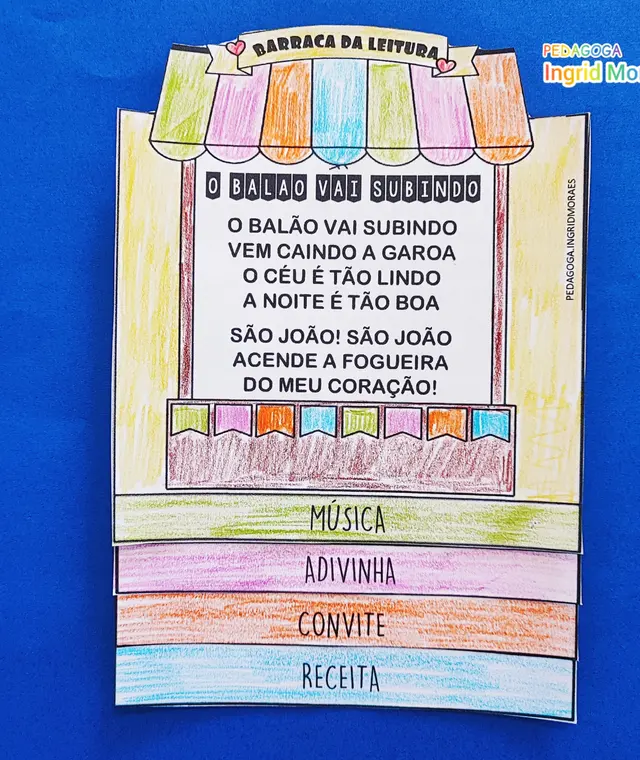 PEDAGOGA
Ingrid Mor
BARRACA DA LEITURA
O BALAO VAI SUBINDO
O BALÃO VAI SUBINDO
VEM CAINDO A GAROA
O CÉU É TÃO LINDO
A NOITE É TÃO BOA
SÃO JOÃO! SÃO JOÃO
ACENDE A FOGUEIRA
DO MEU CORAÇÃO!
PEDAGOGA.INGRIDMORAES
MÚSICA
ADIVINHA
CONVITE
RECEITA